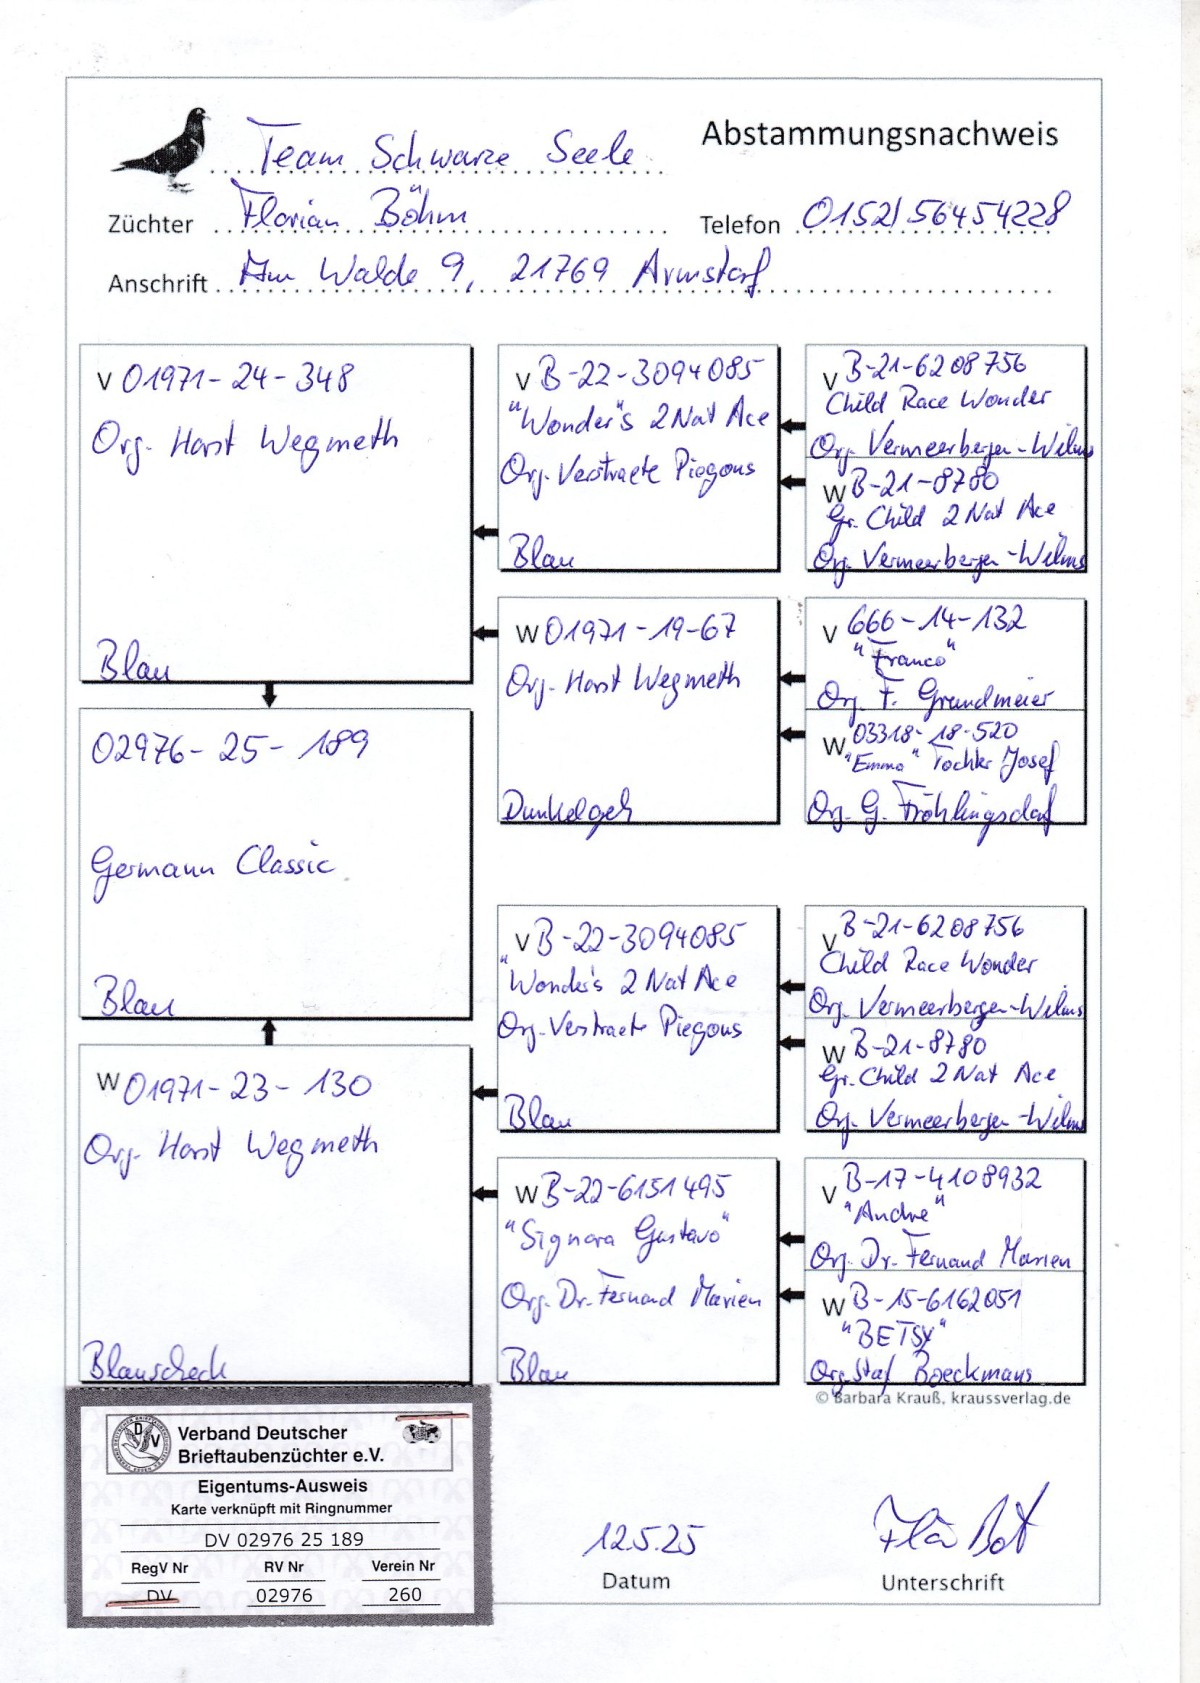 Team Schwarze Seele
Abstammungsnachweis
Züchter Florian Böhm
Telefon 0152/56454228
Anschrift Am Walde 9, 21769 Armstorf
V 01971-24-348
Org. Horst Wegmeth
Blau
V B-22-3094085
"Wonder"s 2 Nat Ace
Org. Verstraete Piegons
Blau
V B-21-6208756
Child Race Wonder
Org. Vermeerbergen-Wilms
W B-21-8780
Gr. Child 2 Nat Ace
Org. Vermeerbergen-Wilms
W 01971-19-67
Org. Horst Wegmeth
Dunkelgeh
V 666-14-132
"Franco"
Org. F. Grundmeier
W 03318-18-520
"Emma" Tochter Josef
Org. G. Fröhlingsdorf
02976-25-189
Germann Classic
Blau
W 01971-23-130
Org. Horst Wegmeth
Blauscheck
V B-22-3094085
"Wonder's 2 Nat Ace
Org. Verstraete Piegons
Blau
V B-21-6208756
Child Race Wonder
Org. Vermeerbergen-Wilms
W B-21-8780
Gr. Child 2 Nat Ace
Org. Vermeerbergen-Wilms
W B-22-6151495
"Signora Gustavo"
Org. Dr. Fernand Marien
Blau
V B-17-4108932
"Andre"
Org. Dr. Fernand Marien
W B-15-6162051
"BETSY"
Org. Staf Boeckmans
© Barbara Krauß, kraussverlag.de
DV
Verband Deutscher
Brieftaubenzüchter e.V.
Eigentums-Ausweis
Karte verknüpft mit Ringnummer
DV 02976 25 189
RegV Nr RV Nr Verein Nr
DV 02976 260
12.5.25
Datum
Unterschrift